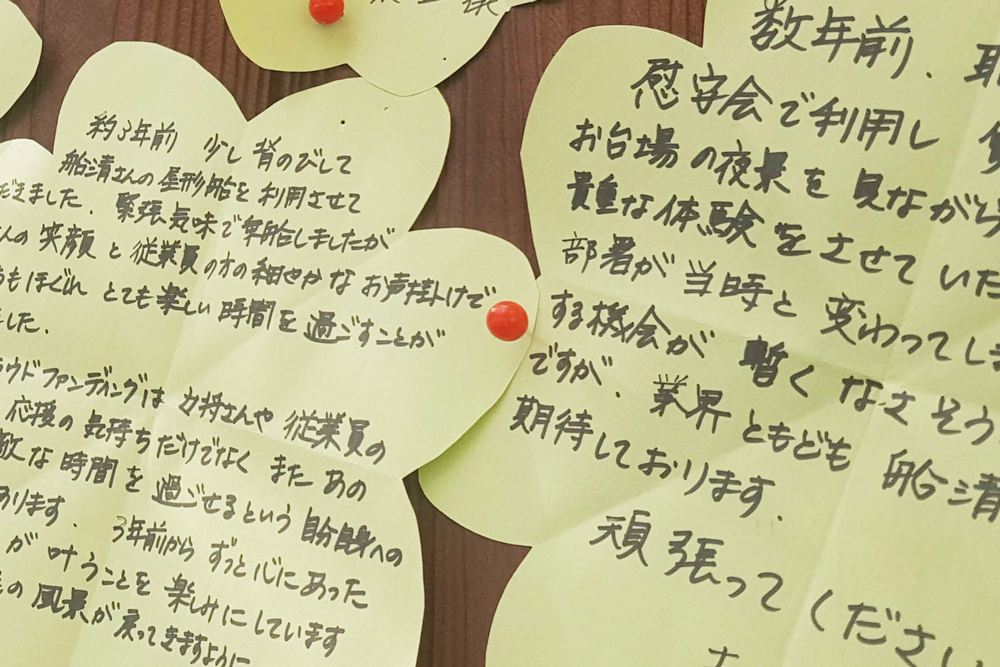 約3年前 少し背のびして
船清さんの屋形船を利用させて
だきました. 緊張気味で乗船しましたが
んの笑顔と従業員の方の細やかな お声掛けで
もほぐれ とても楽しい時間を過ごすことが
した.
ラウドファンディングは 女将さんや 従業員の
応援の気持ちだけでなく また あの
敵な時間を過ごせるという 自分自身への
おります. 3年前から ずっと心にあった
が叶うことを 楽しみにしています
の風景が戻ってきますように
数年前.
慰安会で利用し
お台場の夜景を見ながら
貴重な体験をさせていた
部署が当時と変わってしま
する機会が 暫くなさそう
ですが. 業界ともども 船清
期待しております.
頑張ってください